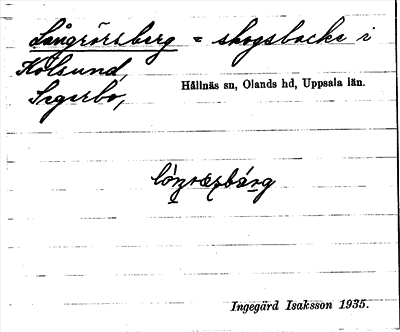 Långrörsberg = skogsbacke i
Kolsund,
Segerbo,
Hållnäs sn, Olands hd, Uppsala län.
Ingegärd Isaksson 1935.